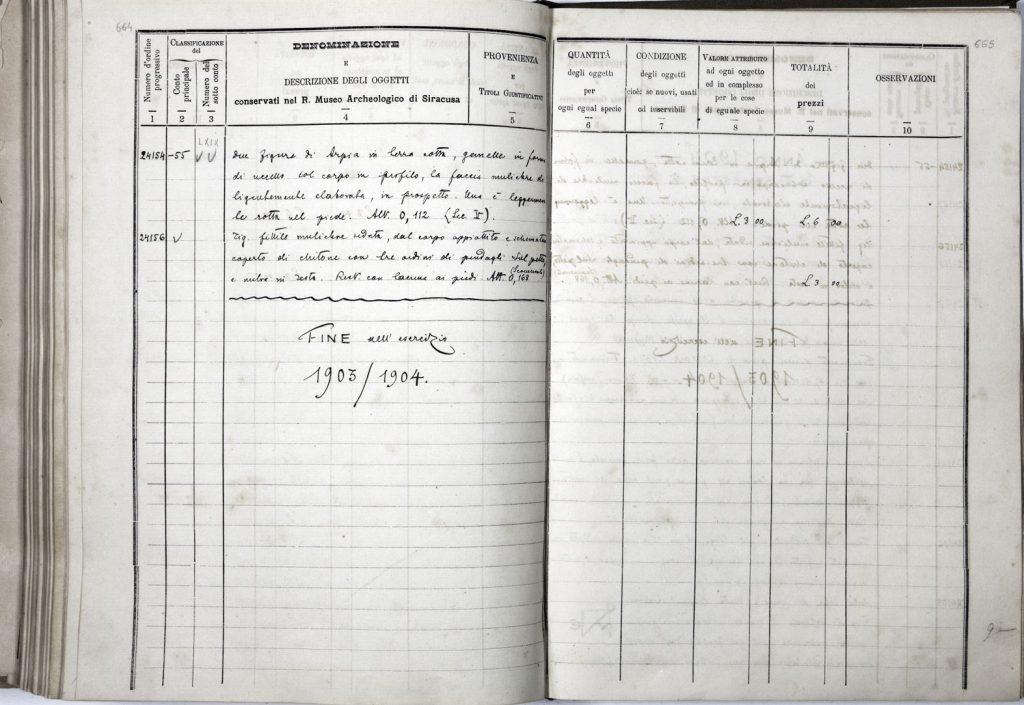 664
Numero d'ordine progressivo
Classificazione del
Conto principale
Numero del sotto conto
DENOMINAZIONE
E
DESCRIZIONE DEGLI OGGETTI
conservati nel R. Museo Archeologico di Siracusa
PROVENIENZA
E
Titoli Giustificativi
1
2
3
4
5
LXIX
24154-55
due figure di Arpia in terra cotta, gemelle in forma
di uccello col corpo in profilo, la faccia muliebre di
ligentemente elaborata, in prospetto. Una è leggermen
te rotta nel piede. Alt. 0,112
24156
Fig. fittile muliebre seduta, dal corpo appiattito e
coperto di chitone con tre ordini di pendagli sul petto
e mitra in testa. con lacune ai piedi Alt. 0,168
FINE dell' esercizio
1903/1904.
665
QUANTITÀ
degli oggetti
per
ogni egual specie
CONDIZIONE
degli oggetti
cioè: se nuovi, usati
od inservibili
Valore attribuito
ad ogni oggetto
ed in complesso
per le cose
di eguale specie
TOTALITÀ
dei
prezzi
OSSERVAZIONI
6
7
8
9
10
L. 3 00 L. 6 00
L. 3 00